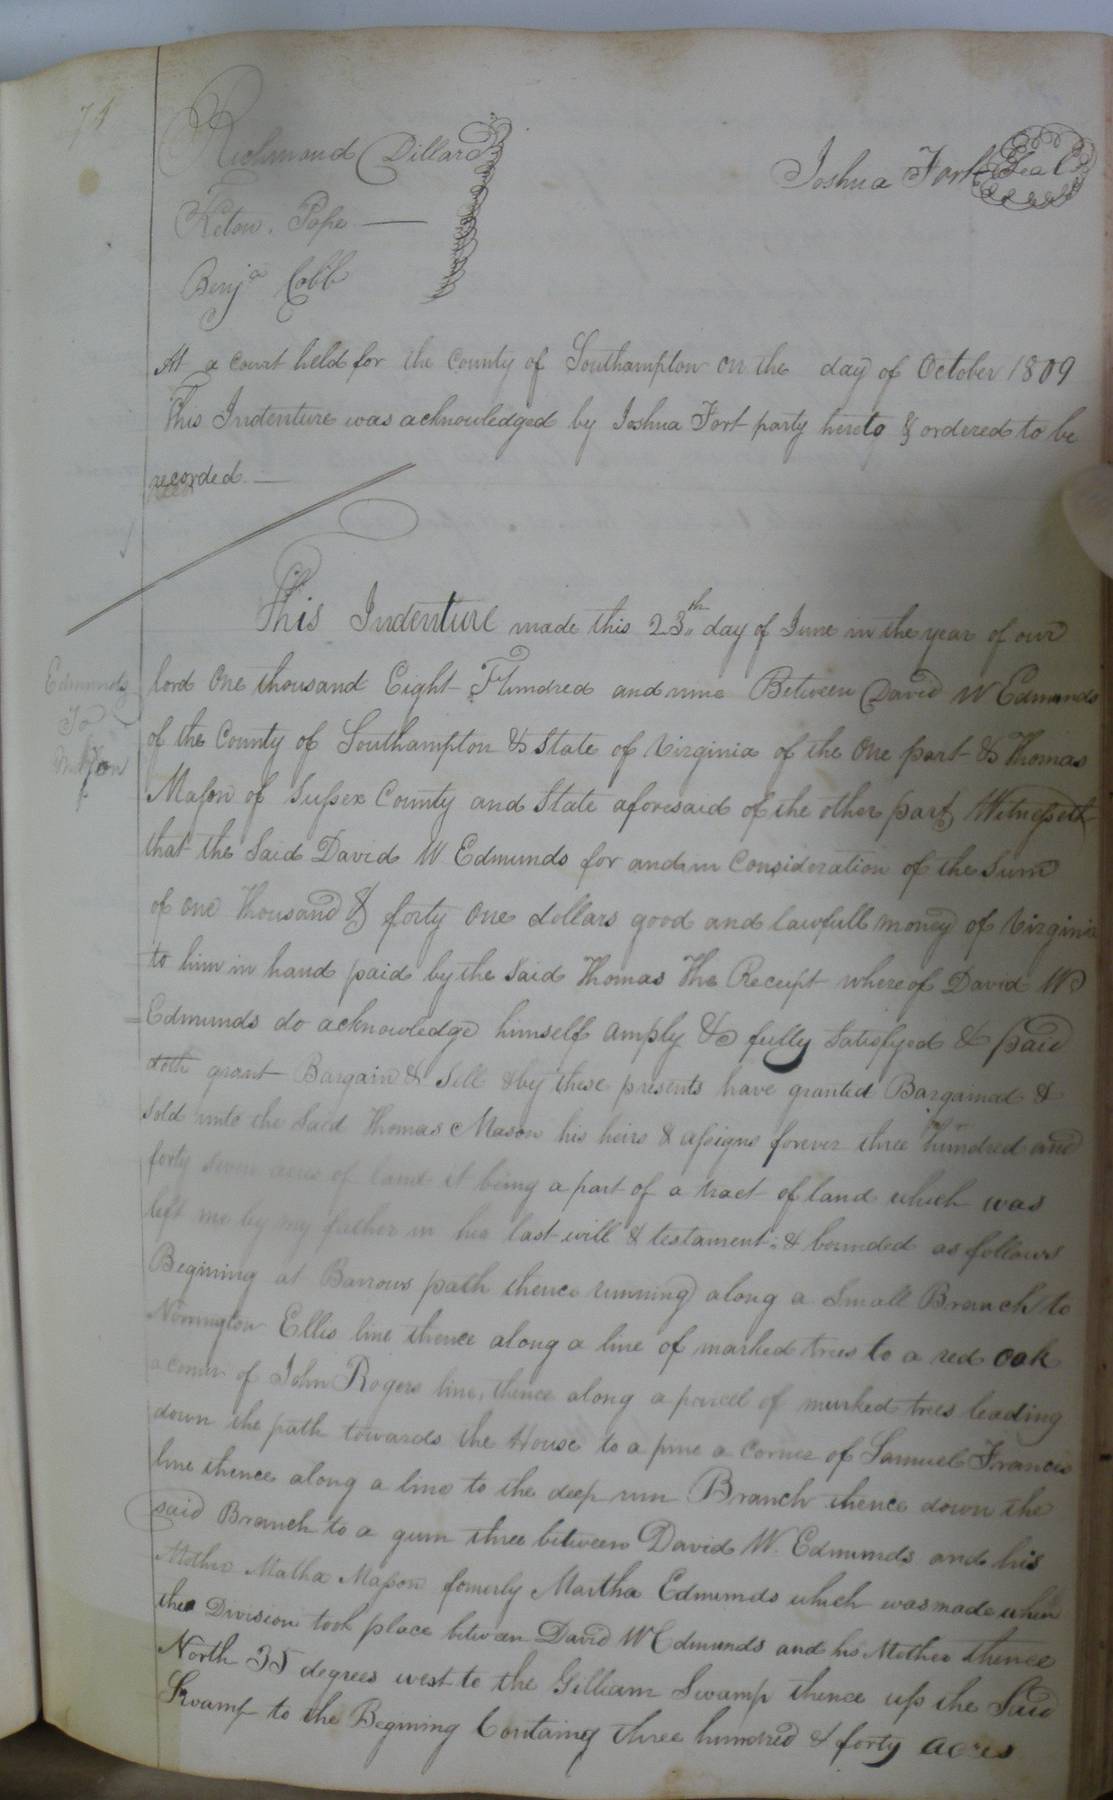 74
Richmond Dillard
Joshua Fort Seal
Pope
Benja Cobb
At a court held for the County of Southampton on the day of October 1809
This Indenture was acknowledged by Joshua Fort party hereto & ordered to be
recorded.
This Indenture made this 23th day of June in the year of our
Edmunds
To
Mason
lord One thousand Eight Hundred and nine Between David W Edmunds
of the County of Southampton & State of Virginia of the One part & Thomas
Mason of Sussex County and State aforesaid of the other part Witnesseth
that the Said David W Edmunds for and in Consideration of the Sum
of one Thousand & forty One dollars good and lawfull money of Virginia
to him in hand paid by the said Thomas The Receipt whereof David W
Edmunds do acknowledge himself amply & fully Satisfyed & paid
doth grant Bargain & Sell & by these presents have granted Bargained &
Sold unto the Said Thomas Mason his heirs & assigns forever three hundred and
forty seven acres of land it being a part of a tract of land which was
left me by my father in his last will & testament & bounded as follows
Begining at Barrows path thence running along a Small Branch to
Ellis line thence along a line of marked trees to a red oak
a corner of John Rogers line, thence along a parcel of marked trees leading
down the path towards the House to a pine a corner of Samuel Francis
line thence along a line to the deep run Branch thence down the
said Branch to a gum three between David W. Edmunds and his
Mother Matha Mason fomerly Martha Edmunds which was made when
the Division took place between David W Edmunds and his Mother thence
North 35 degrees west to the Gilliam Swamp thence up the Said
Swamp to the Begining Containg three hundred & forty acres